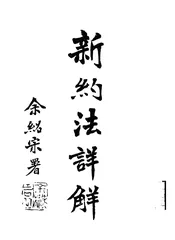 新約法詳解
余紹宋署